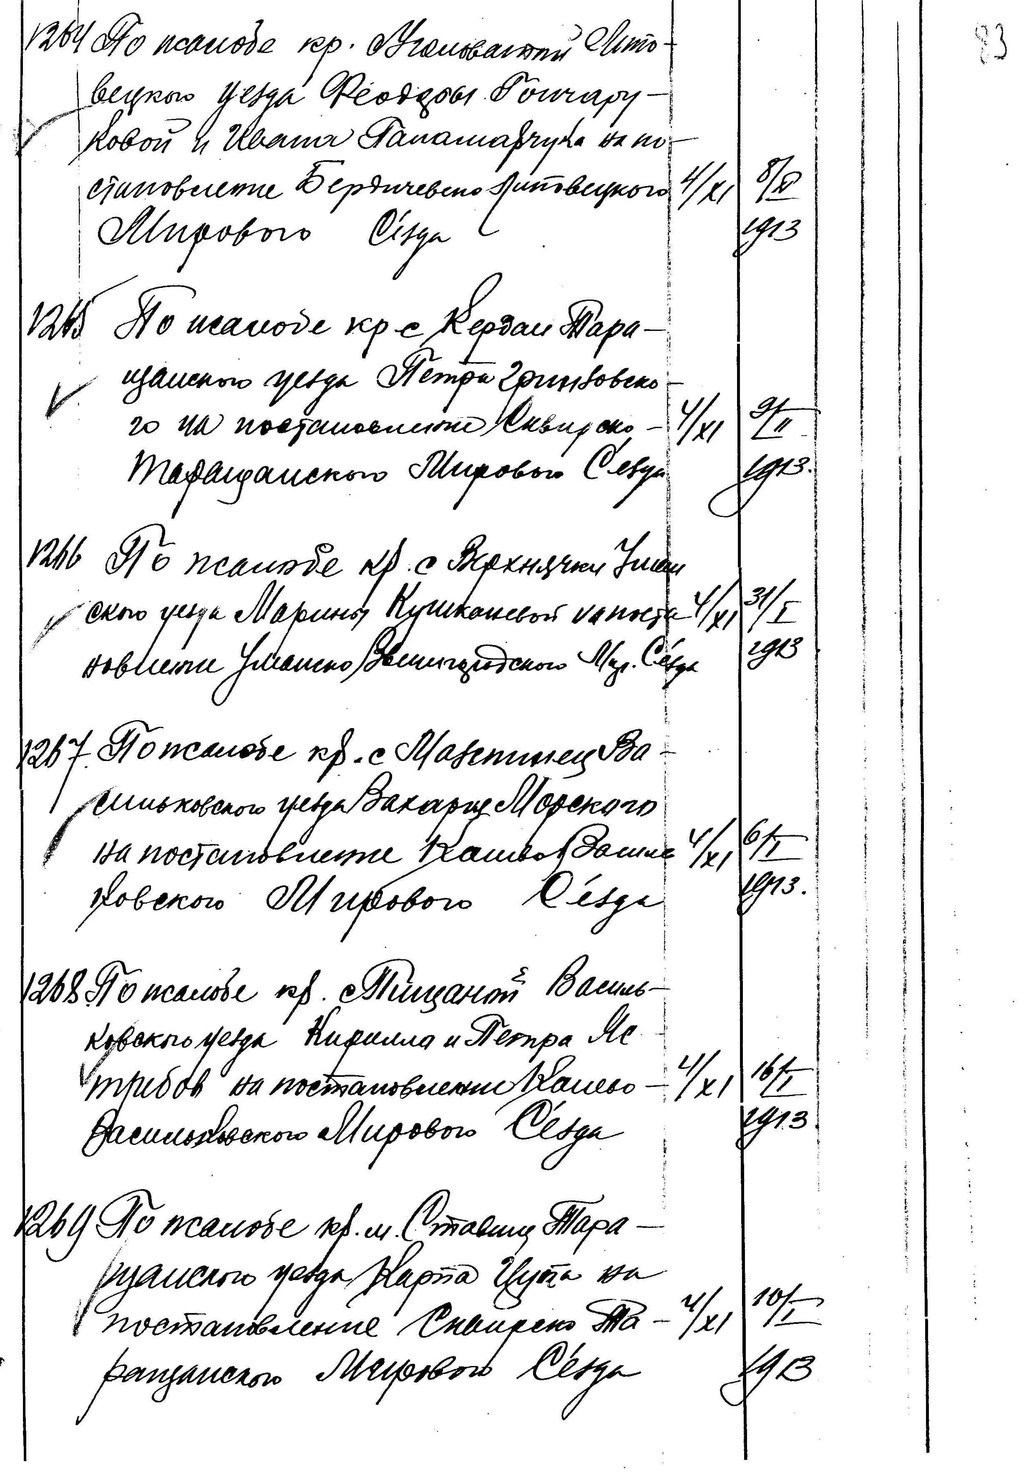 83
1264 По жалобе кр. с Угловатой Липо-
вецкого уезда Феодоры Гончару-
ковой и Ивана Паламарчука на по-
становление Бердичевско Липовецкого 4/XI 8/II
Мирового Съезда 1913
1265 По жалобе кр с Кердан Тара-
щанского уезда Петра Гриньовско-
го на постановление Сквирско- 4/XI 9/II
Таращанского Мирового Съезда 1913.
1266 По жалобе кр. с Верхнячки Уман
ского уезда Марины на поста 4/XI 31/I
новление Уманско Звенигородского Мир. Съезда 1913
1267 По жалобе кр. с Мазепинец Ва-
сильковского уезда Захария Морского
на постановление Киево Василь 4/XI 6/I
ковского Мирового Съезда 1913.
1268 По жалобе кр. с Пищаной Василь-
ковского уезда Кирилла и Петра Яс
требов на постановление Киево- 4/XI 16/I
Васильковского Мирового Съезда 1913.
1269 По жалобе кр. м. Ставищ Тара-
щанского уезда Карпа на
постановление Сквирско Та- 4/XI 10/I
ращанского Мирового Съезда 1913